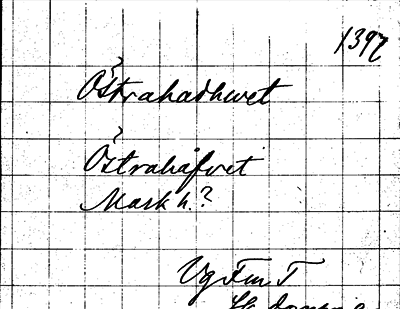 1397
Östrahadhwet
Östrahafvet
Mark h.?
Vg Fm T